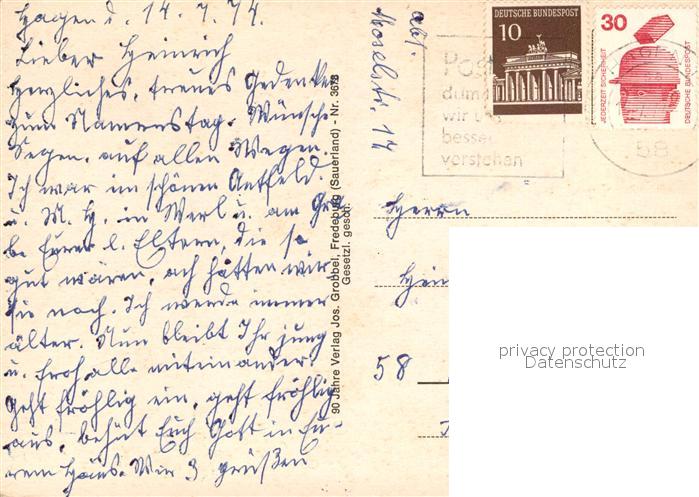 Hagen d. 14.7.74.
Lieber Heinrich
Herzliches, treues Gedenken
zum Namenstag. Wünsche
Segen auf allen Wegen.
Ich war im schönen Antfeld.
u. M. H. in Werl u. am Gra
be Eurer l. Eltern, die so
gut waren, ach hätten wir
sie noch. Ich werde immer
älter. Nun bleibt Ihr jung
u. froh alle miteinander.
Geht fröhlig ein, geht fröhlig
aus, behüt Euch Gott in Eu-
rem Haus. Wir 3 grüßen
90 Jahre Verlag Jos. Grobbel, Fredeburg (Sauerland) - Nr. 3678
Gesetzl. gesch.
Abs.
Moselstr. 14
Post
damit
wir uns
besser
verstehen
DEUTSCHE BUNDESPOST
10
30
JEDERZEIT SICHERHEIT
DEUTSCHE BUNDESPOST
58
Herrn
Hein
58
privacy protection
Datenschutz